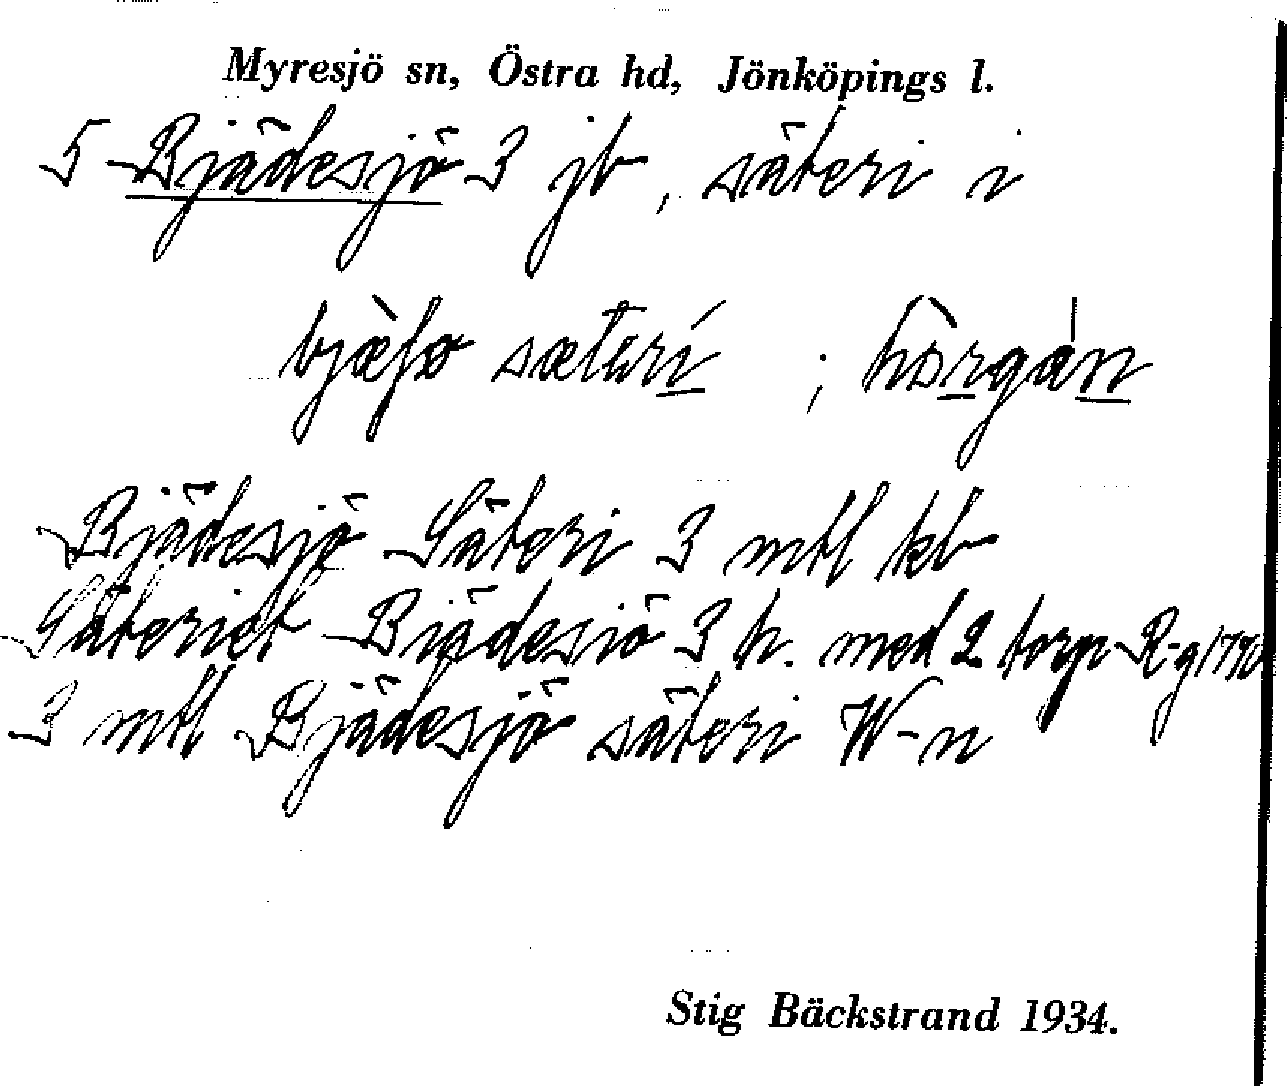 Myresjö sn, Östra hd, Jönköpings l.
5 Bjädesjö 3 jb, säteri i
bjæ̀ſɷ sæterí ; hs̀rgán
Bjädesjö Säteri 3 mtl kb
Säteriet Biädesiö 3 h. med 2 torp R-g 1790
3 mtl Bjädesjö säteri W-n
Stig Bäckstrand 1934.